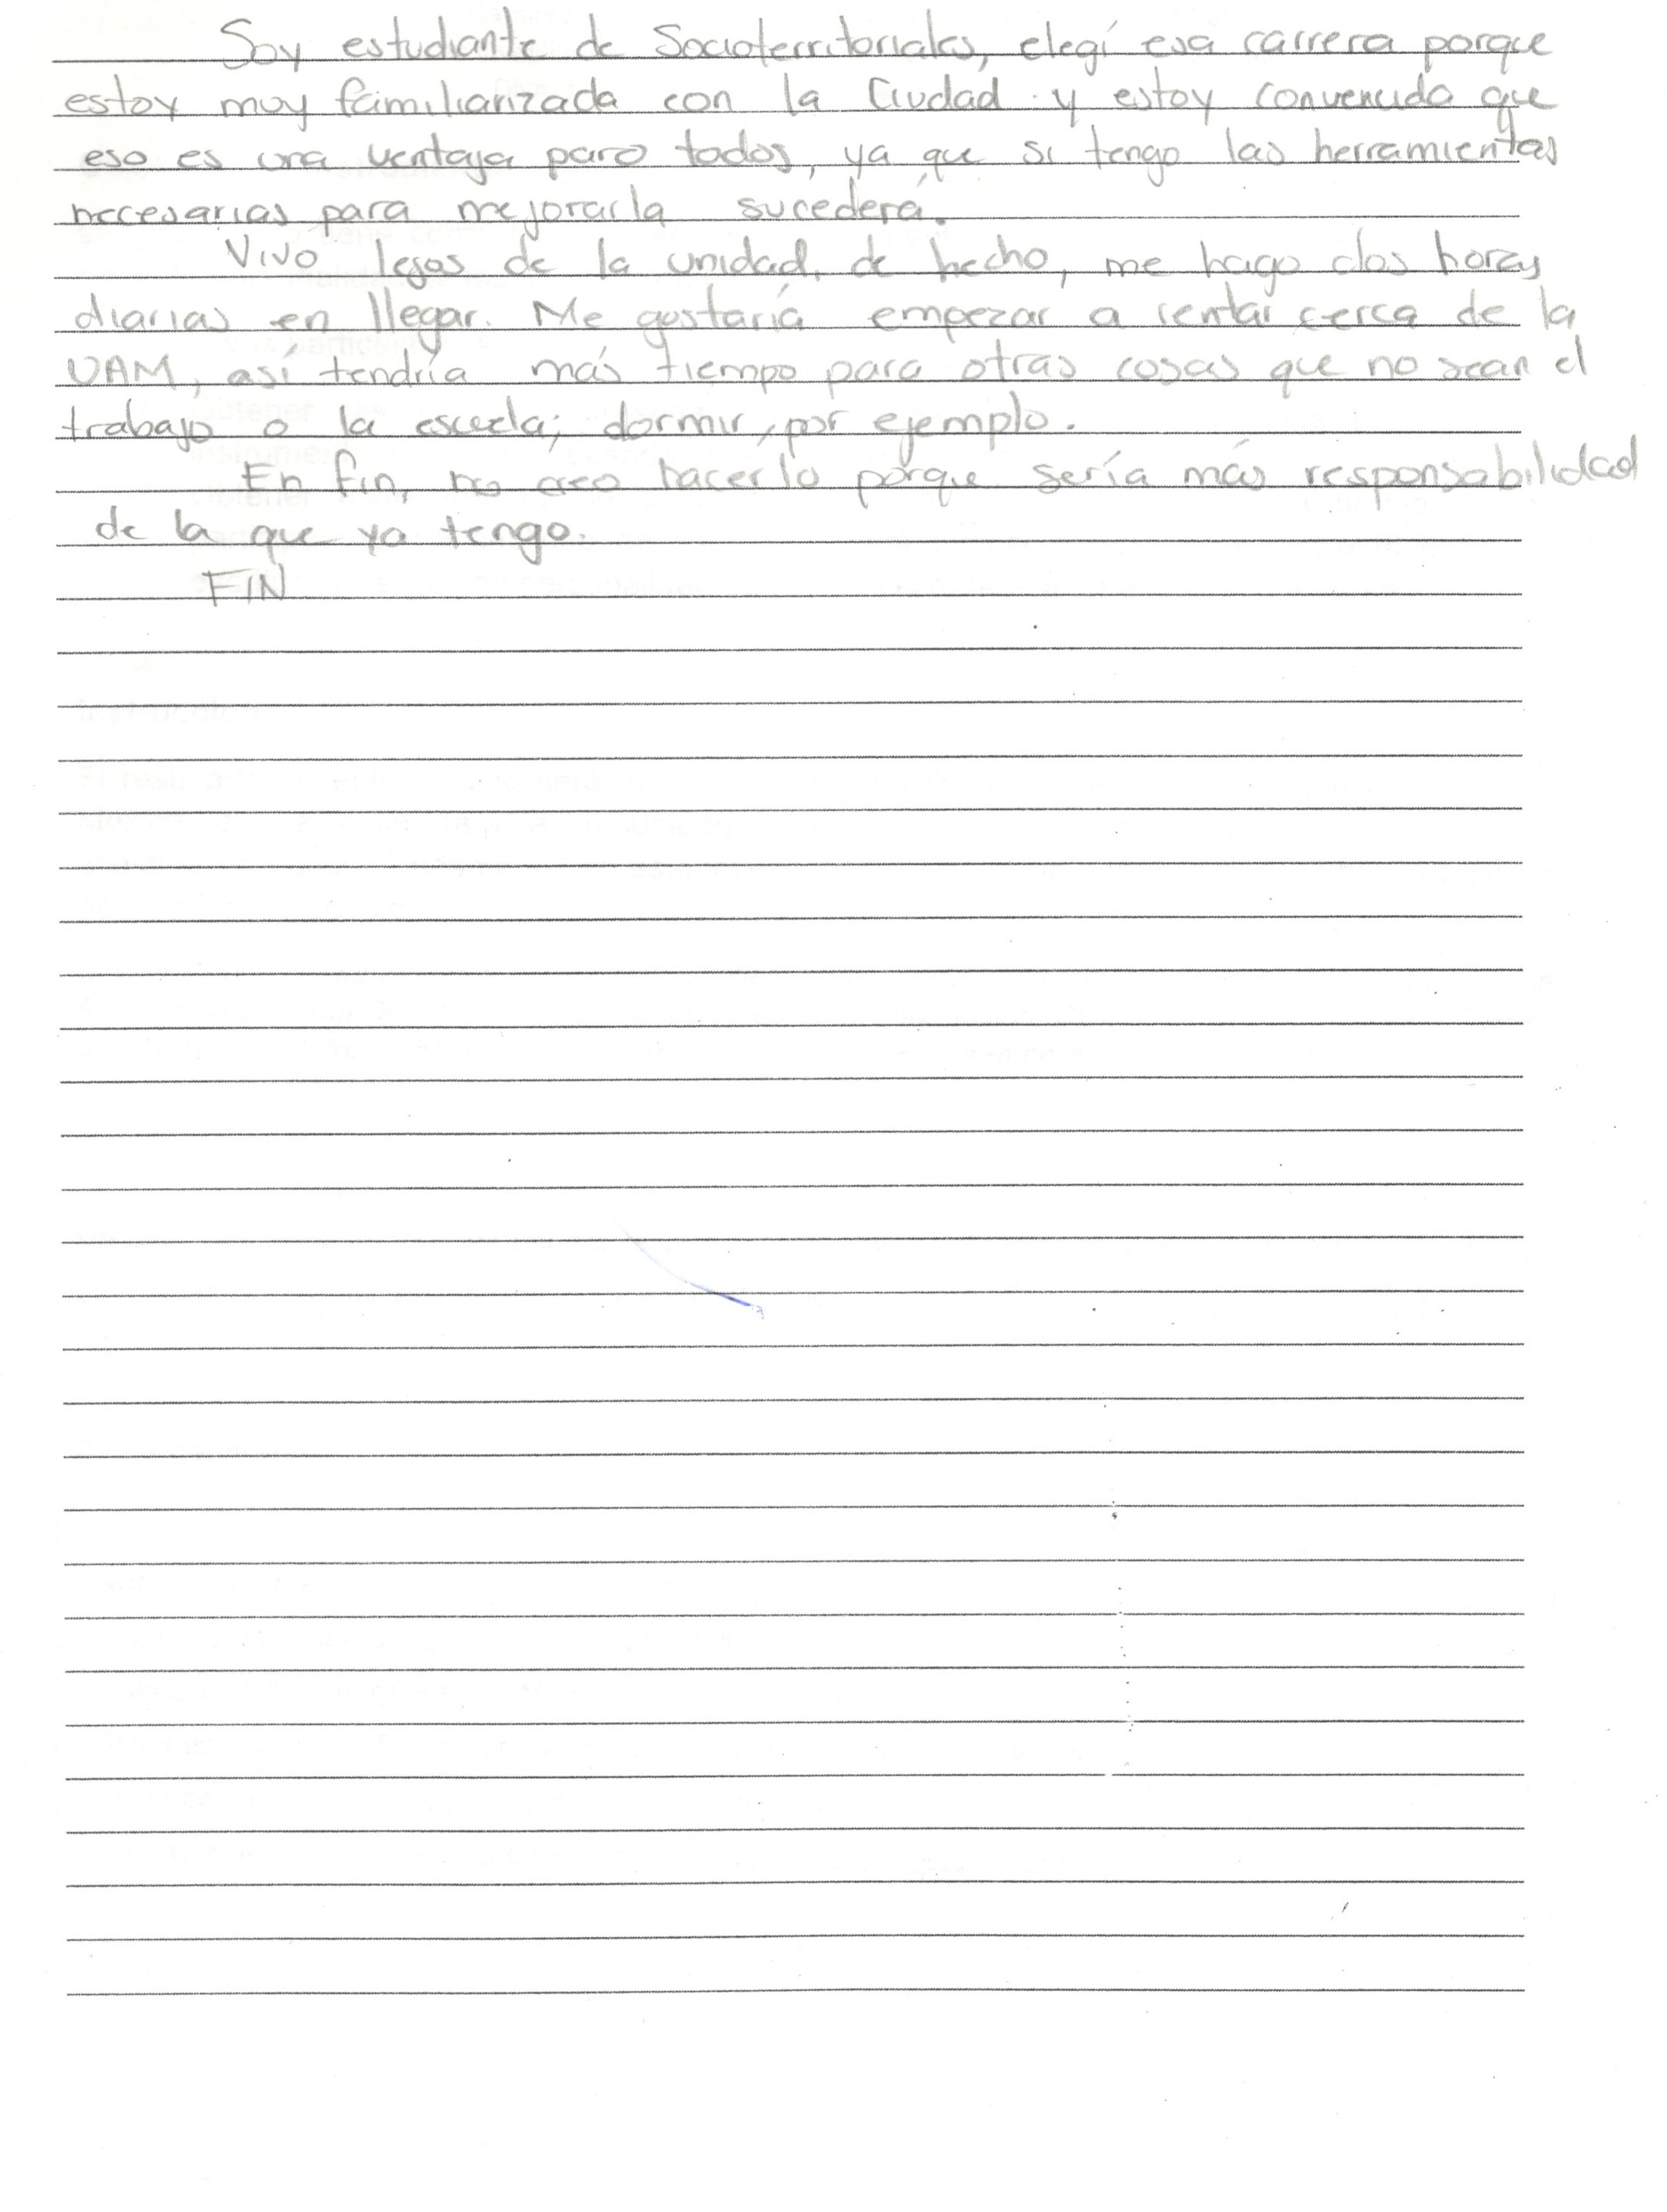 Soy estudiante de Socioterritoriales, elegí esa carrera porque
estoy muy familiarizada con la Ciudad y estoy convencida que
eso es una ventaja para todos, ya que si tengo las herramientas
necesarias para mejorarla sucederá.
Vivo lejos de la unidad, de hecho, me hago dos horas
diarias en llegar. Me gustaría empezar a rentar cerca de la
UAM, así tendría más tiempo para otras cosas que no sean el
trabajo o la escuela; dormir, por ejemplo.
En fin, no creo hacerlo porque sería más responsabilidad
de la que ya tengo.
FIN